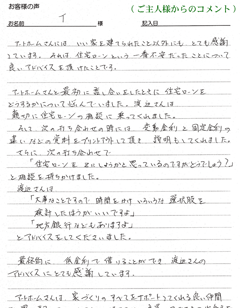 お客様の声
(ご主人様からのコメント)
お名前 T 様 記入日
アットホームさんには、いい家を建てられたこと以外にも、とても感謝
しています。それは住宅ローンという一番不安だったことについて
良いアドバイスを頂けたことです。
アットホームさんと最初に話し合いをしたときに、住宅ローンを
どうするかについて悩んでいました。渡辺さんは
親切に住宅ローンの相談に乗ってくれました。
そして次の打ち合わせの時には、変動金利と固定金利の
違いなどの資料をプリントアウトして頂き、説明もしてくれました。
さらに、次の打ち合わせで
「住宅ローンを に しようかと思っているのですがどうでしょう?」
と相談を持ちかけました。
渡辺さんは
「大事なことですので、時間をかけ、いろいろな選択肢を
検討したほうがいいですよ」
「地方銀行などもありますよ」
とアドバイスをしてくださいました。
最終的に、低金利で借りることができ、渡辺さんの
アドバイスにとても感謝しています。
アットホームさんは、家づくりのすべてをサポートしてくれる良い仲間